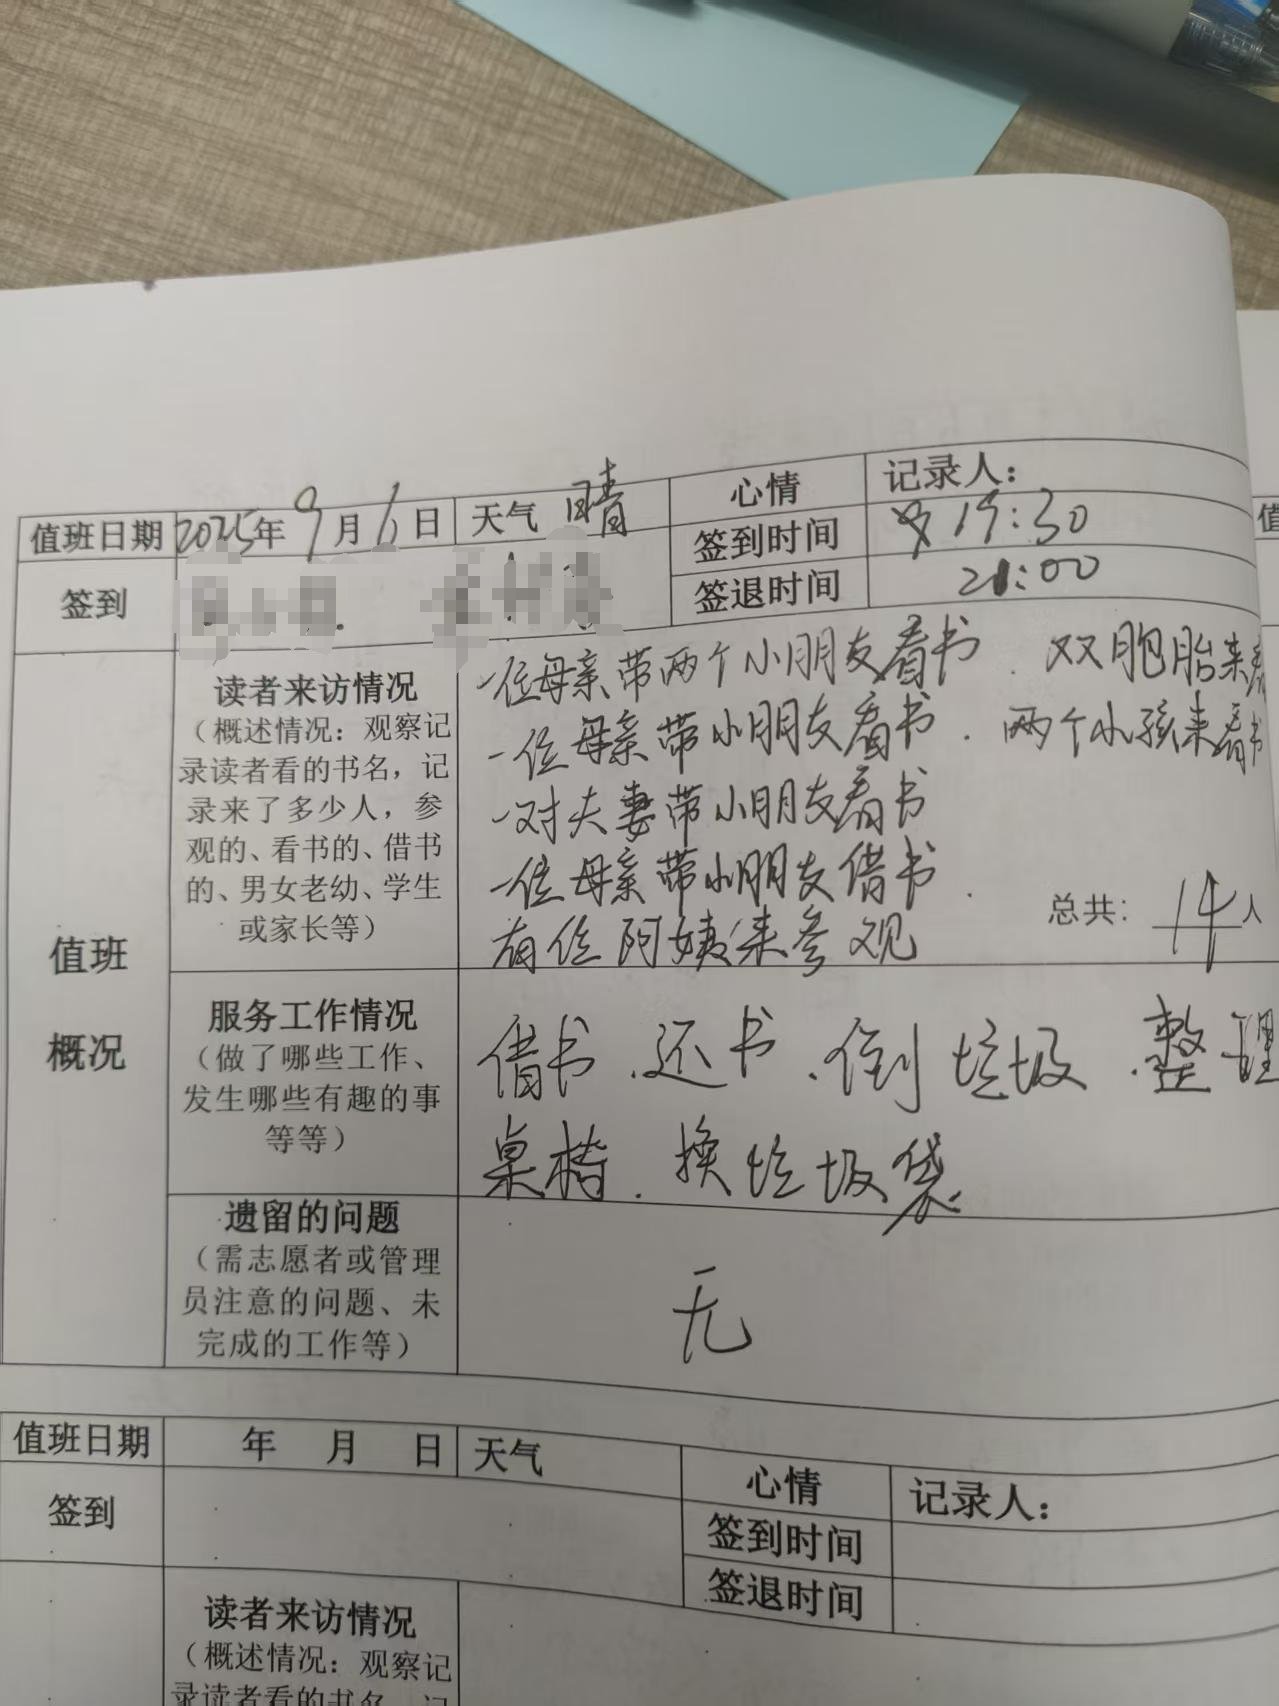 值班日期 2025年9月1日 天气 晴 心情 记录人：
签到时间 19:30
签到
签退时间 21:00
值班概况
读者来访情况
（概述情况：观察记
录读者看的书名，记
录来了多少人，参
观的、看书的、借书
的、男女老幼、学生
或家长等）
一位母亲带两个小朋友看书. 双胞胎来看
一位母亲带小朋友看书. 两个小孩来看书
一对夫妻带小朋友看书
一位母亲带小朋友借书.
有位阿姨来参观
总共：14人
服务工作情况
（做了哪些工作、
发生哪些有趣的事
等等）
借书、还书、倒垃圾、整理
桌椅. 换垃圾袋.
遗留的问题
（需志愿者或管理
员注意的问题、未
完成的工作等）
无
值班日期 年 月 日 天气 心情 记录人：
签到
签到时间
签退时间
读者来访情况
（概述情况：观察记
录读者看的书名，记
值